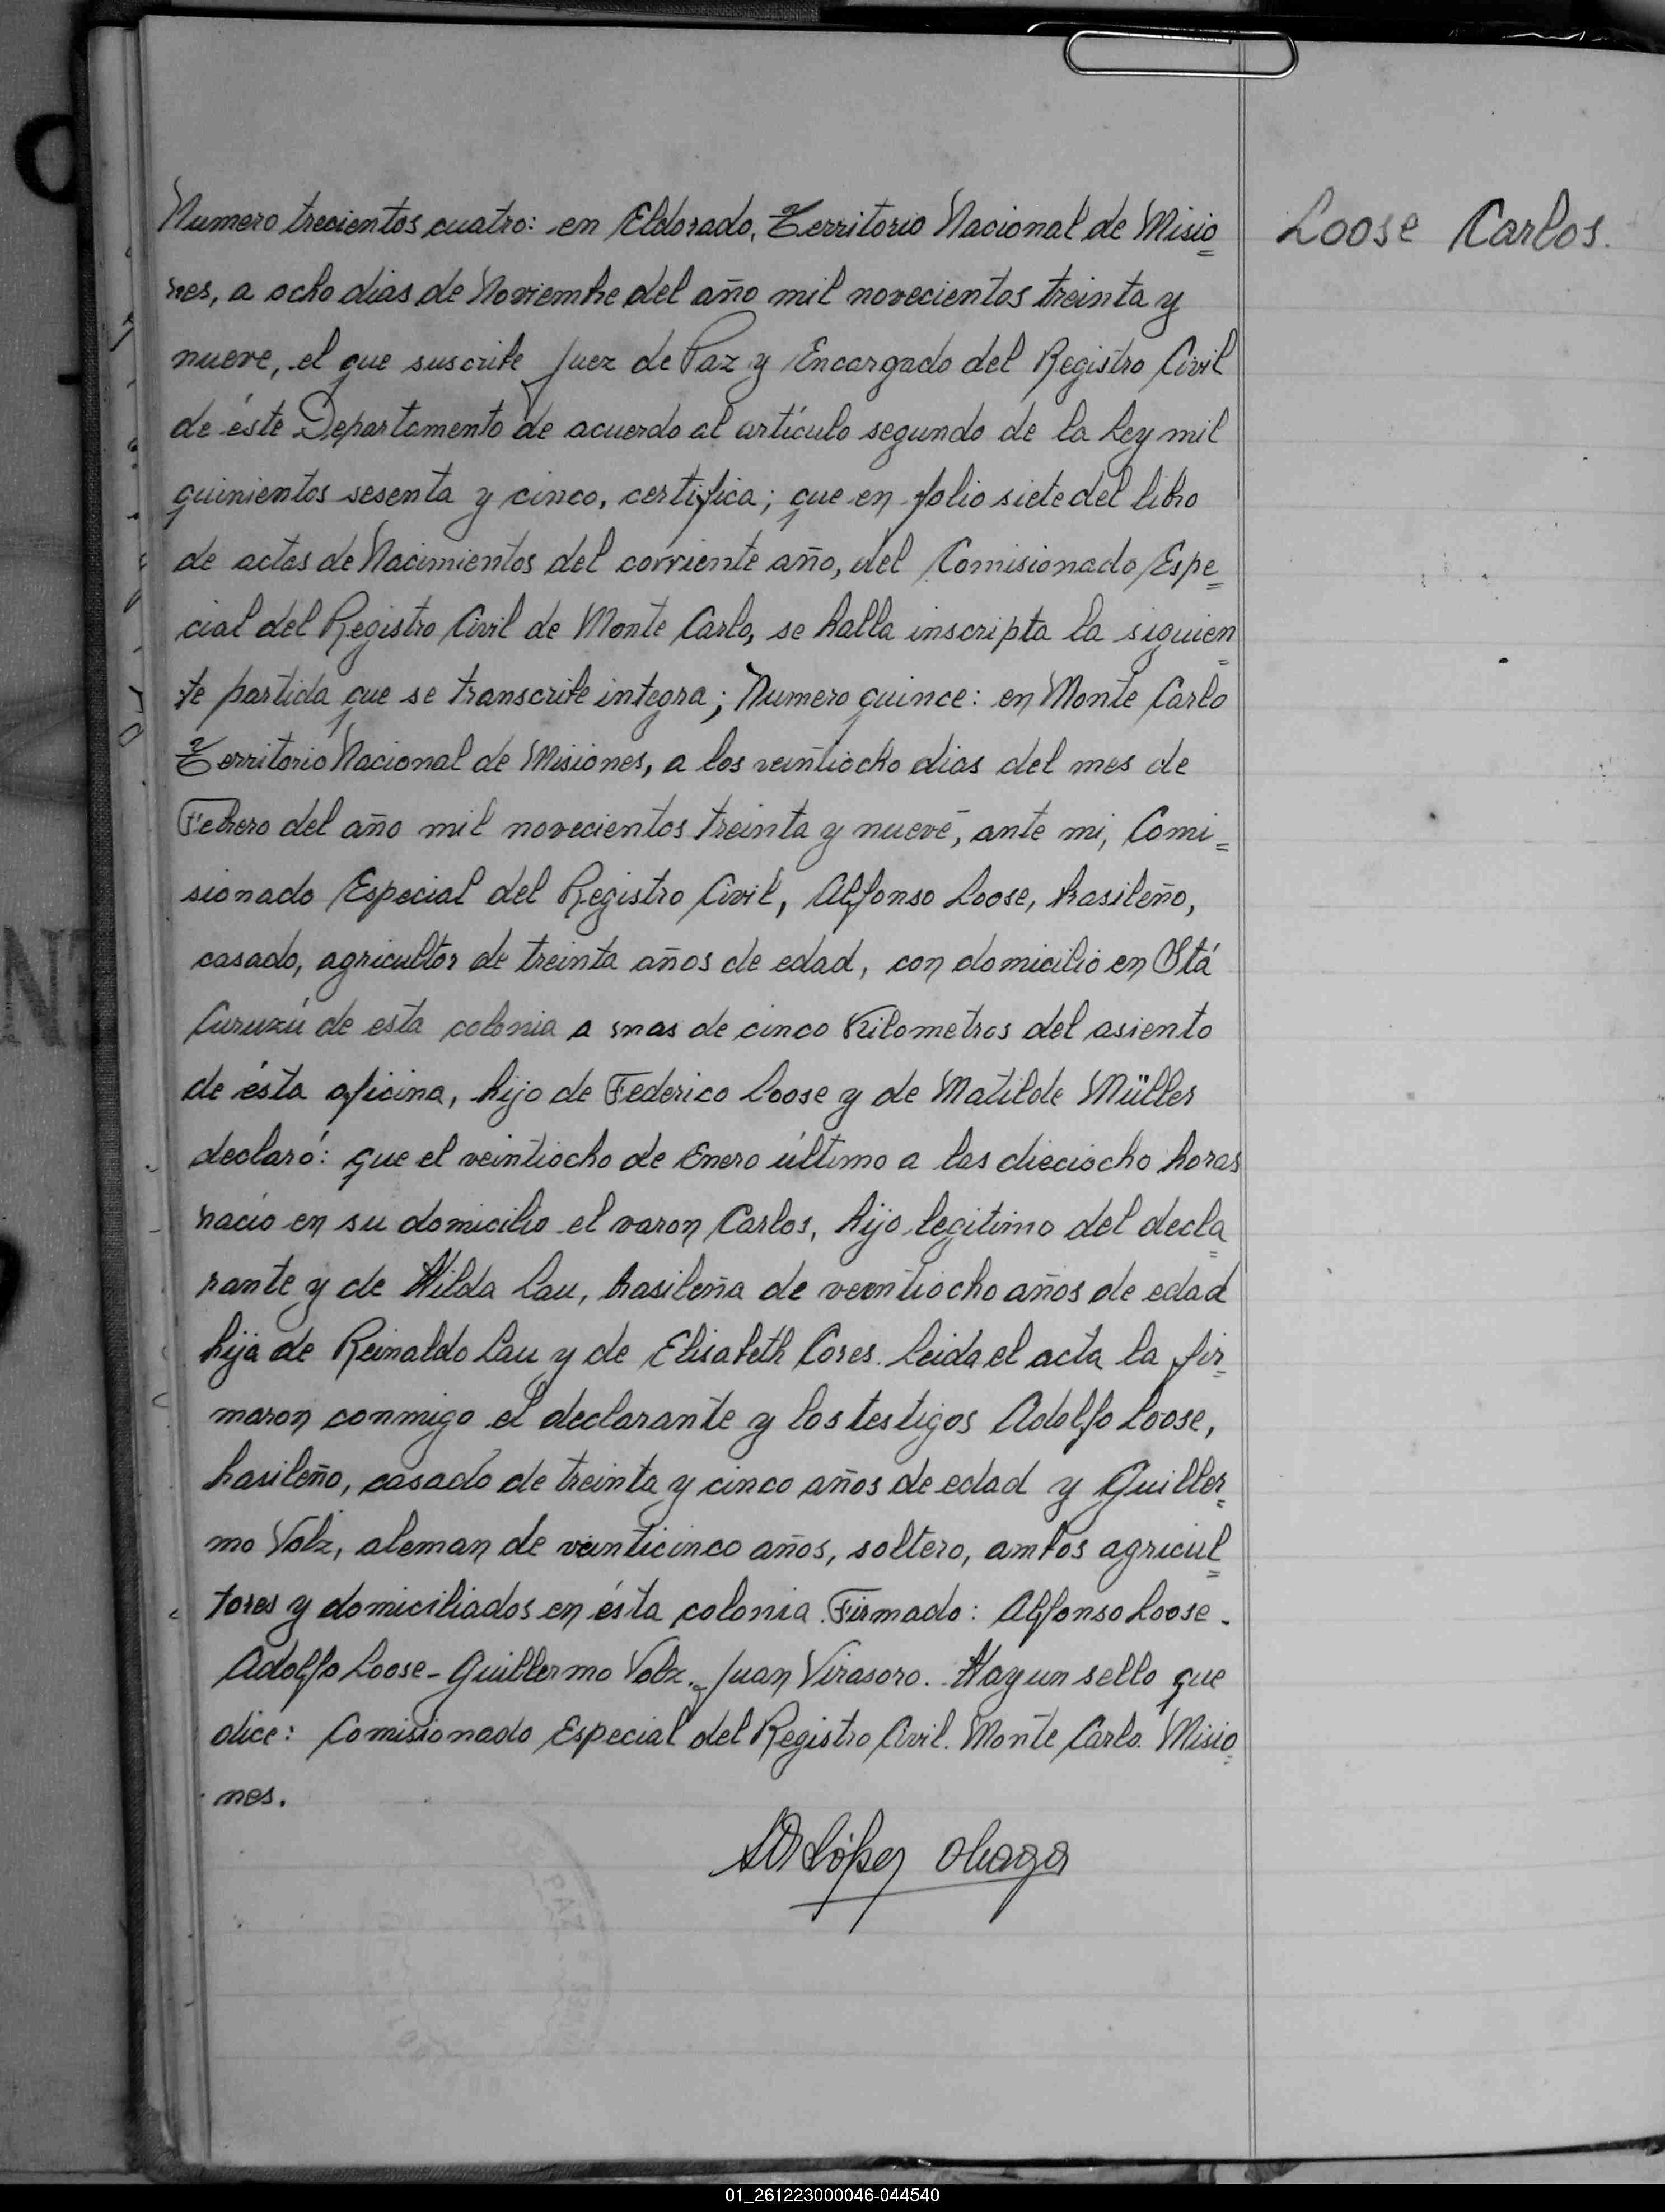 Numero trecientos cuatro: en Eldorado, Territorio Nacional de Misio=
Loose Carlos.
nes, a ocho dias de Noviembre del año mil novecientos treinta y
nueve, el que suscribe Juez de Paz y Encargado del Registro Civil
de éste Departamento de acuerdo al artículo segundo de la Ley mil
quinientos sesenta y cinco, certifica; que en folio siete del libro
de actas de Nacimientos del corriente año, del Comisionado Espe=
cial del Registro Civil de Monte Carlo, se halla inscripta la siguien=
te partida que se transcribe integra; Numero quince: en Monte Carlo
Territorio Nacional de Misiones, a los veintiocho dias del mes de
Febrero del año mil novecientos treinta y nueve, ante mi, Comi=
sionado Especial del Registro Civil, Alfonso Loose, brasileño,
casado, agricultor de treinta años de edad, con domicilio en Itá
Curuzú de esta colonia a mas de cinco Kilometros del asiento
de ésta oficina, hijo de Federico Loose y de Matilde Müller
declaró: que el veintiocho de Enero último a las dieciocho horas
nació en su domicilio el varon Carlos, hijo legitimo del decla=
rante y de Hilda Lau, brasileña de veintiocho años de edad
hija de Reinaldo Lau y de Elisabeth Cores. Leida el acta la fir=
maron conmigo el declarante y los testigos Adolfo Loose,
brasileño, casado de treinta y cinco años de edad y Guiller=
mo Volz, aleman de veinticinco años, soltero, ambos agricul=
tores y domiciliados en ésta colonia. Firmado: Alfonso Loose-
Adolfo Loose-Guillermo Volz. Juan Virasoro. Hay un sello que
dice: Comisionado Especial del Registro Civil. Monte Carlo. Misio=
nes.
López
01_261223000046-044540